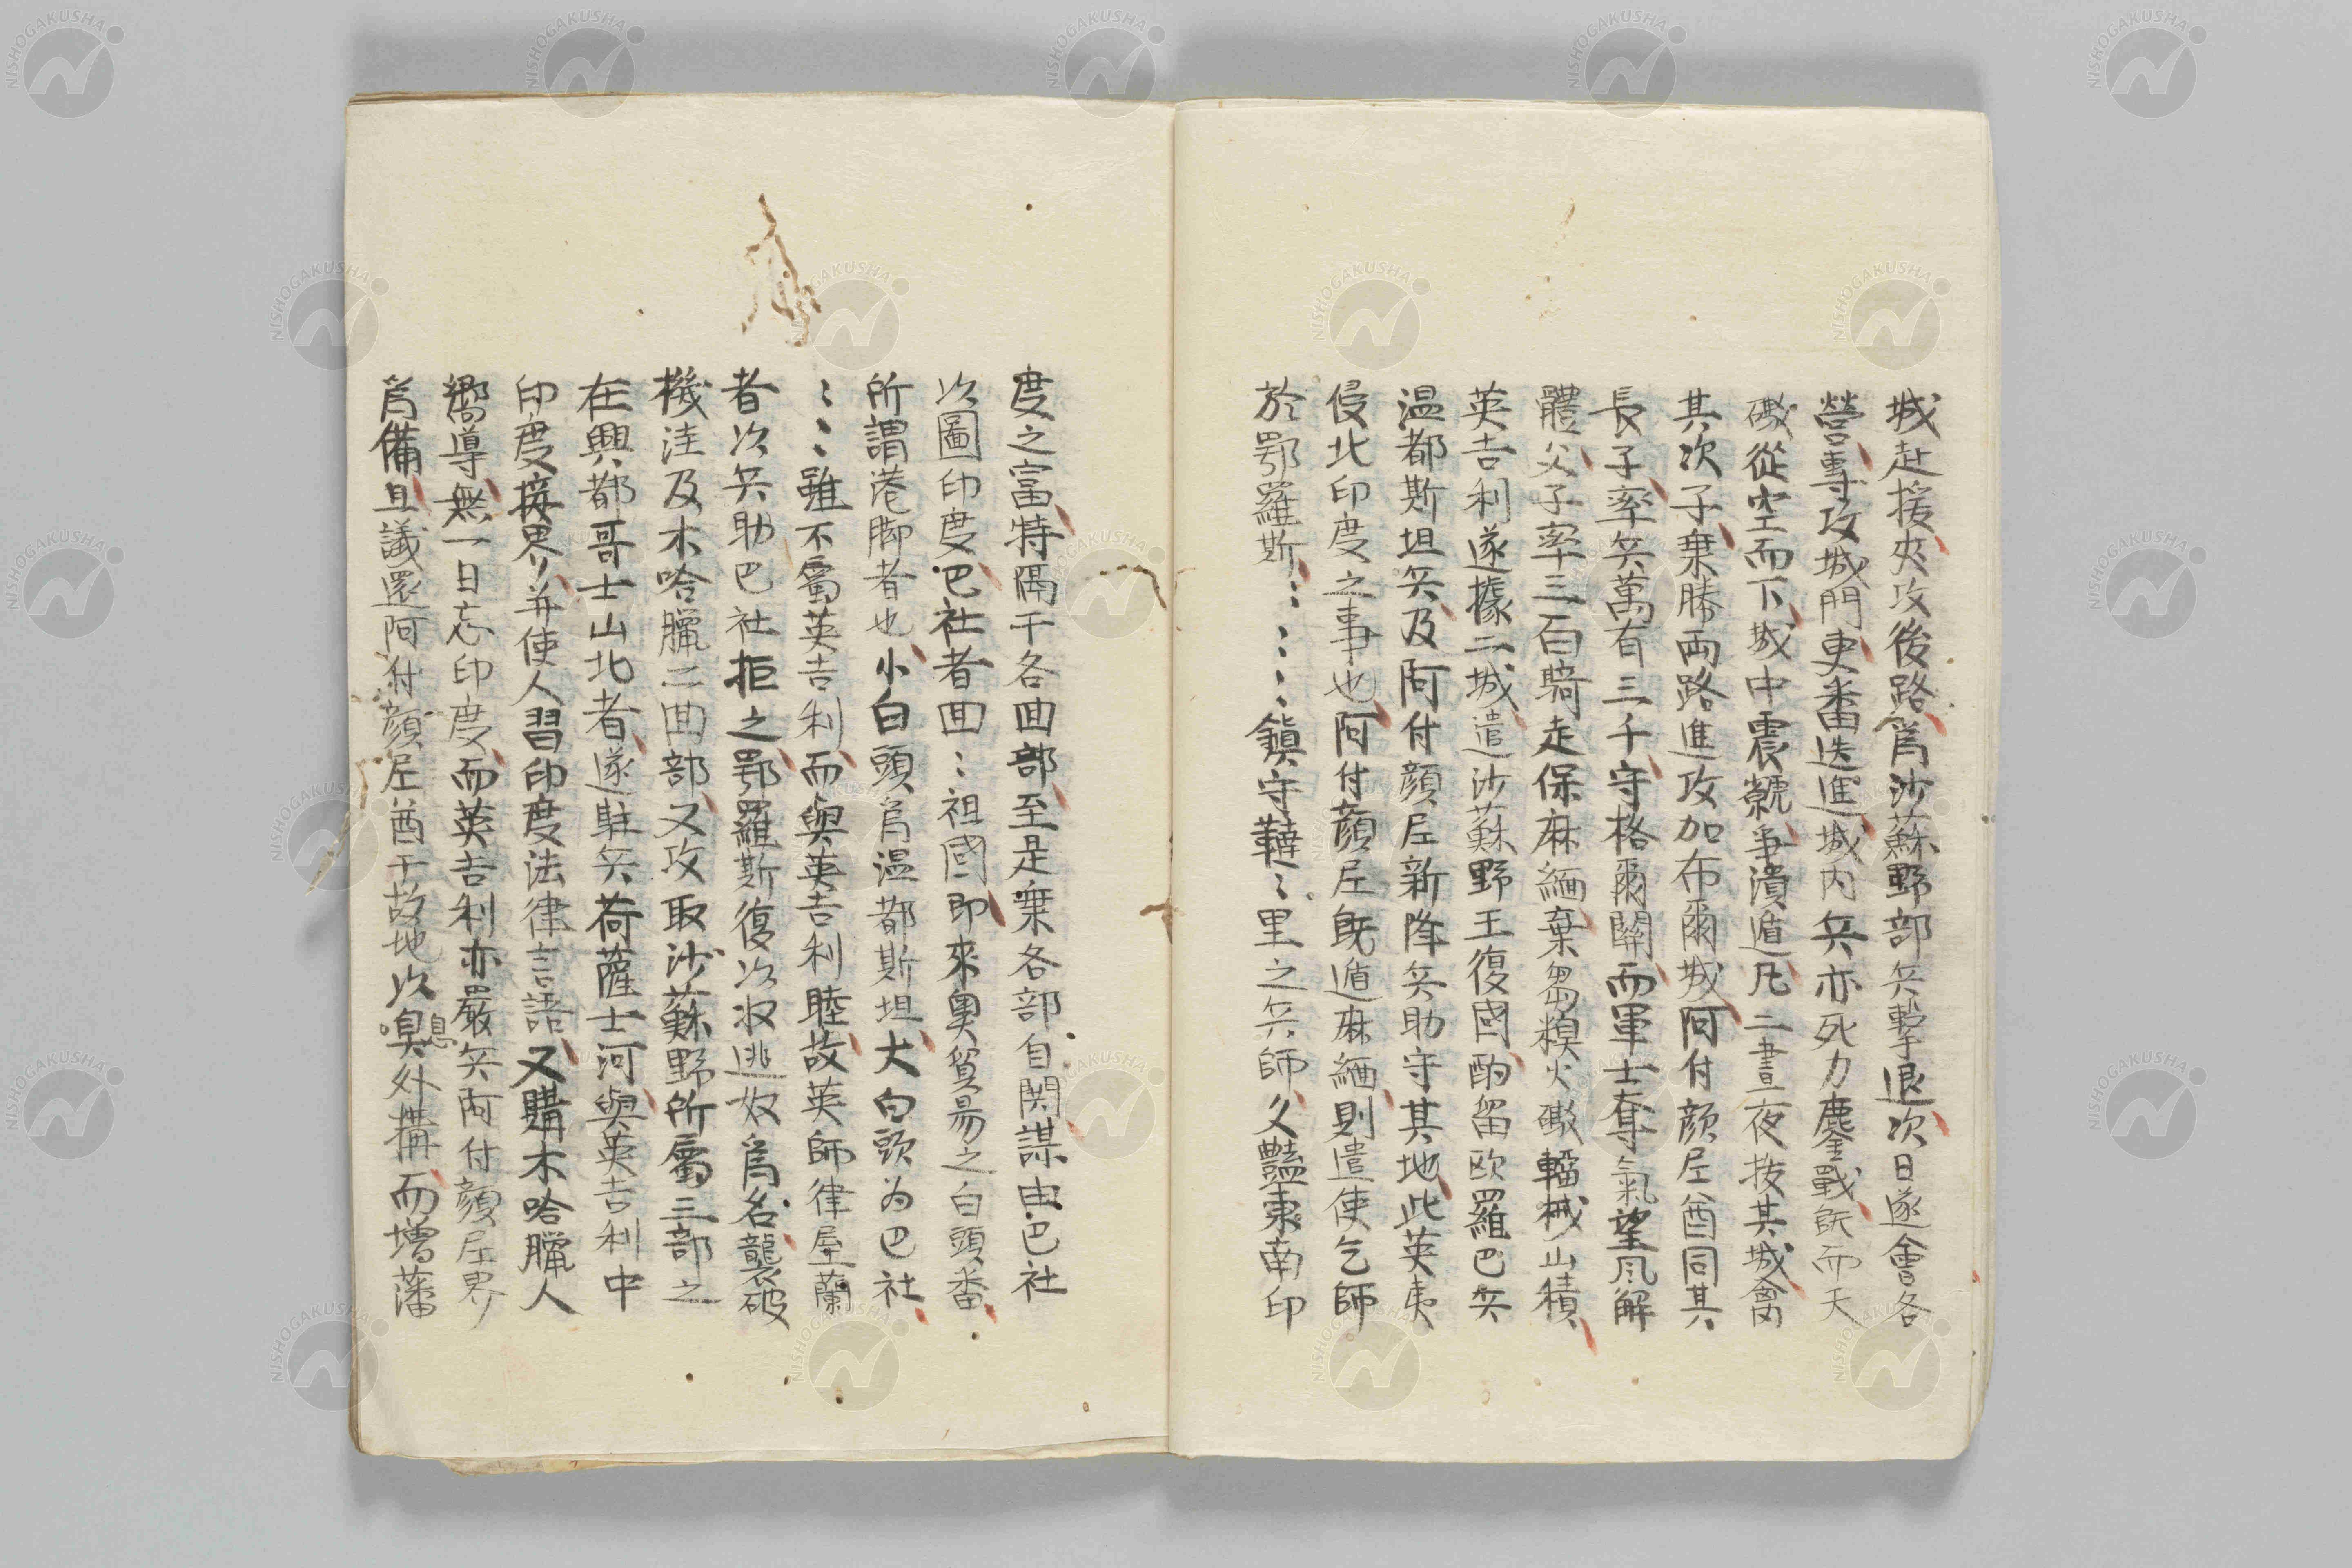 城赴援夾攻後路爲沙蘇野部兵擊退次日遂會各
營專攻城門更番迭進城内兵亦死力鏖戰旣而天
礟從空而下城中震虩爭潰遁凡二晝夜抜其城禽
其次子乗勝兩路進攻加布爾城阿付顔尼酋同其
長子率兵萬有三千守格爾關而軍士奪氣望風解
體父子率三百騎走保麻緬棄芻糗火礟輜械山積
英吉利遂據二城遣沙蘇野王復國酌留欧羅巴兵
温都斯坦兵及阿付顔尼新降兵助守其地此英夷
侵北印度之事也阿付顔尼旣遁麻緬則遣使乞師
於鄂羅斯〻〻〻鎭守韃〻里之兵師久豔東南印
度之富特隔于各囬部至是乗各部自閧謀由巴社
以圖印度巴社者囬〻祖國即來粤貿易之白頭番
所謂港脚者也小白頭爲温都斯坦大白頭为巴社
〻〻〻雖不屬英吉利而與英吉利睦故英師律屋蘭
者次兵助巴社拒之鄂羅斯復以收逃奴爲名襲破
機洼及木哈臘二囬部又攻取沙蘇野所屬三部之
在興都哥士山北者遂駐兵荷薩士河與英吉利中
印度接界并使人習印度法律言語又購木哈臘人
嚮導無一日忘印度而英吉利亦嚴兵阿付顔尼界
爲備且議還阿付顔尼酋于故地以息外搆而增藩